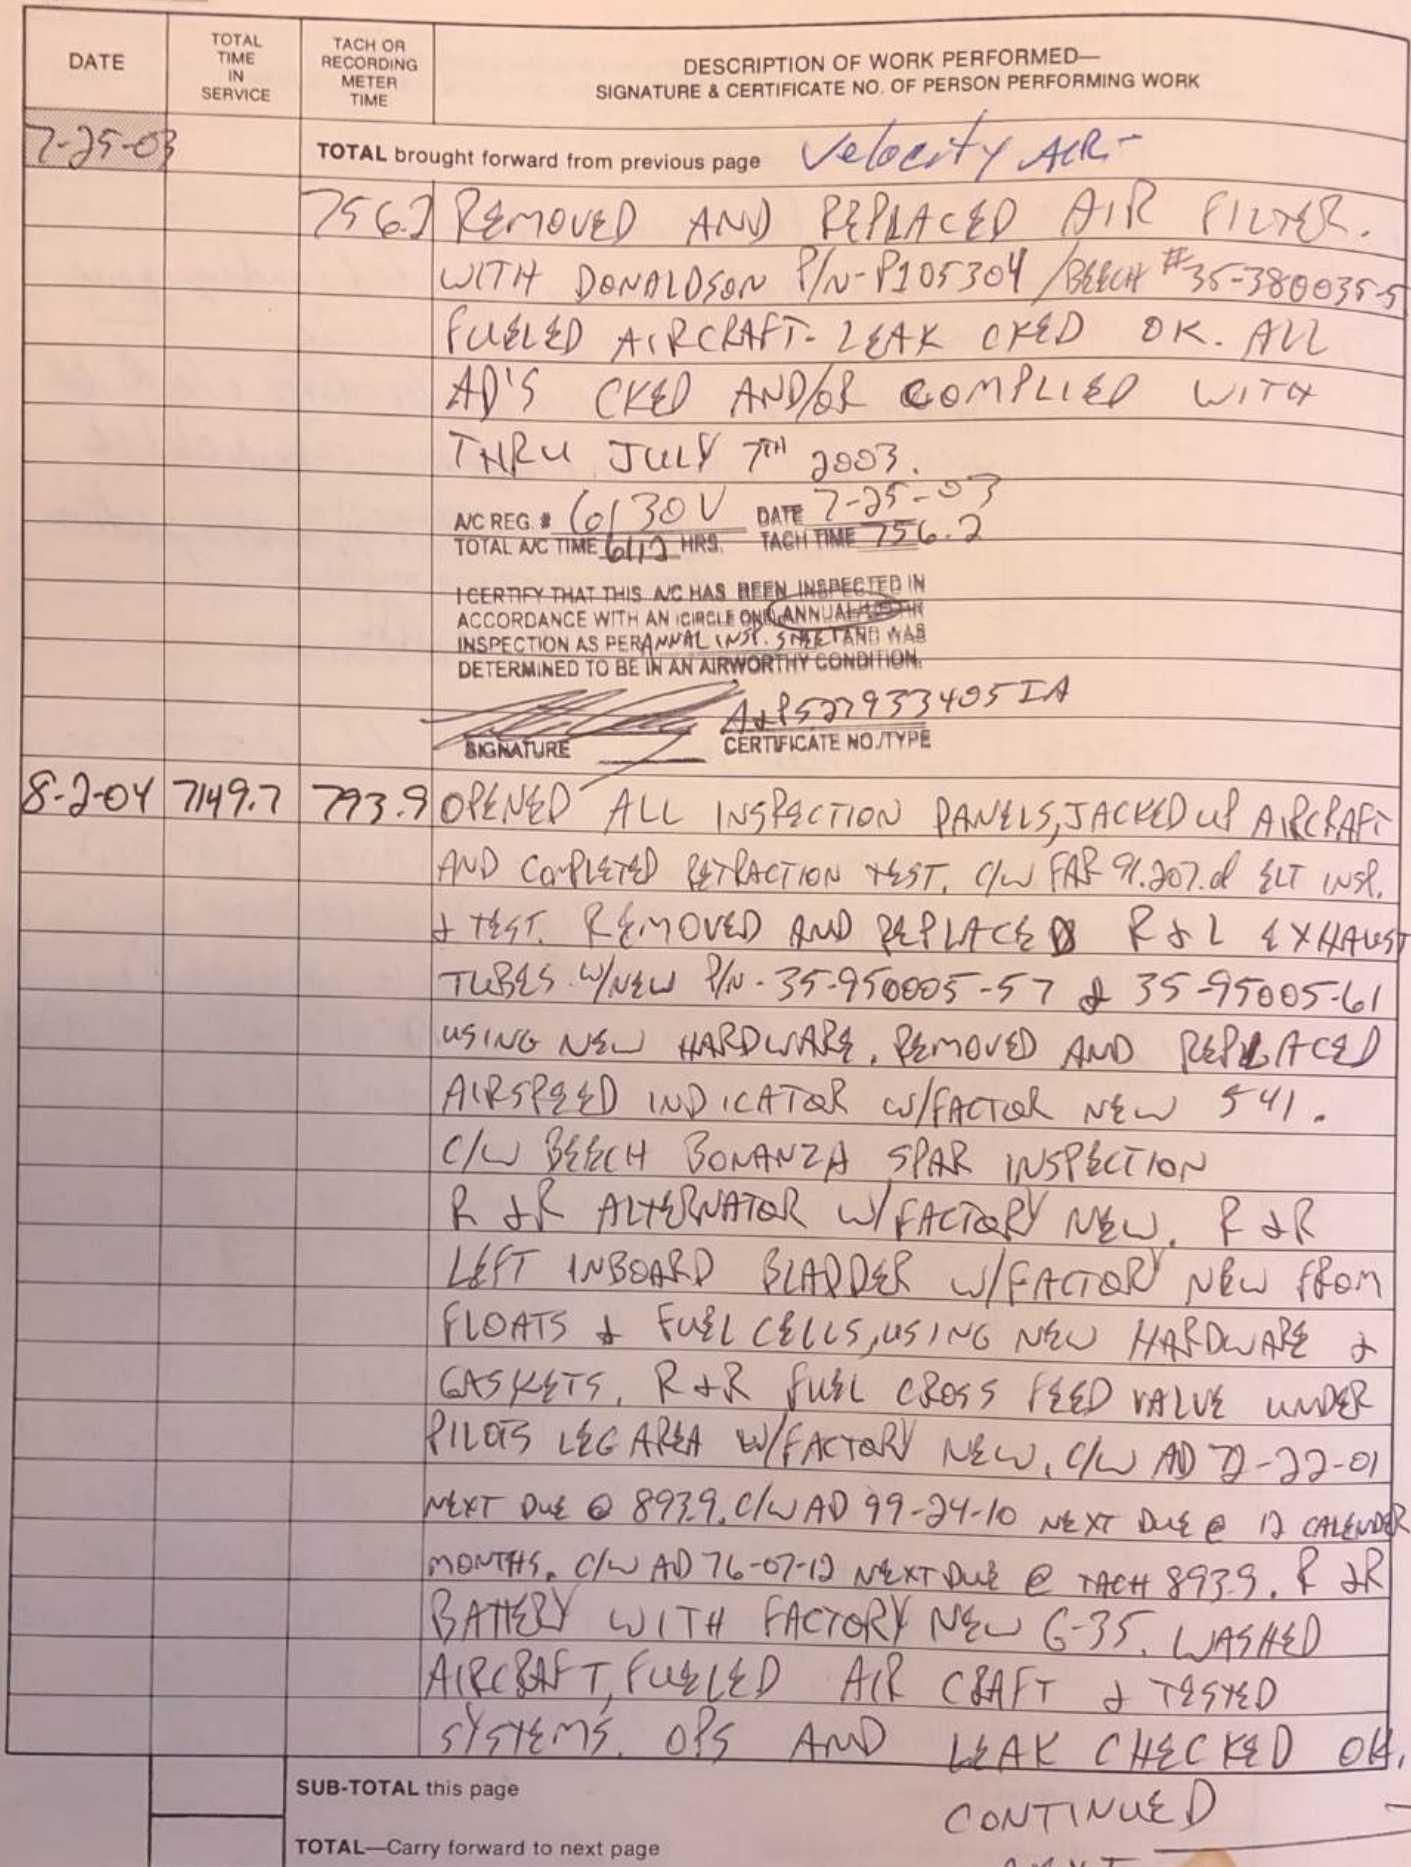 DATE
TOTAL TIME IN SERVICE
TACH OR RECORDING METER TIME
DESCRIPTION OF WORK PERFORMED—
SIGNATURE & CERTIFICATE NO. OF PERSON PERFORMING WORK
7-25-03 TOTAL brought forward from previous page Velocity AIR-
756.2 REMOVED AND REPLACED AIR FILTER.
WITH DONALDSON P/N-P105304 /BEECH #35-380035-5
FUELED AIRCRAFT- LEAK CKED OK. ALL
AD'S CKED AND/OR COMPLIED WITH
THRU JULY 7TH 2003.
A/C REG. # 6130V DATE 7-25-03
TOTAL A/C TIME 6112 HRS. TACH TIME 756.2
I CERTIFY THAT THIS A/C HAS BEEN INSPECTED IN
ACCORDANCE WITH AN (CIRCLE ONE) ANNUAL
INSPECTION AS PER ANNAL INSP. SHEET AND WAS
DETERMINED TO BE IN AN AIRWORTHY CONDITION.
A&P527933405IA
SIGNATURE CERTIFICATE NO./TYPE
8-2-04 7149.7 793.9 OPENED ALL INSPECTION PANELS, JACKED UP AIRCRAFT
AND COMPLETED RETRACTION TEST. C/W FAR 91.207.d ELT INSP.
& TEST. REMOVED AND REPLACED R & L EXHAUST
TUBES W/NEW P/N - 35-950005-57 & 35-95005-61
USING NEW HARDWARE, REMOVED AND REPLACED
AIRSPEED INDICATOR W/FACTOR NEW 541.
C/W BEECH BONANZA SPAR INSPECTION
R & R ALTERNATOR W/FACTORY NEW. R & R
LEFT INBOARD BLADDER W/FACTORY NEW FROM
FLOATS & FUEL CELLS, USING NEW HARDWARE &
GASKETS. R & R FUEL CROSS FEED VALVE UNDER
PILOTS LEG AREA W/FACTORY NEW. C/W AD 72-22-01
NEXT DUE @ 893.9. C/W AD 99-24-10 NEXT DUE @ 12 CALENDER
MONTHS. C/W AD 76-07-12 NEXT DUE @ TACH 893.9. R & R
BATTERY WITH FACTORY NEW G-35. WASHED
AIRCRAFT, FUELED AIR CRAFT & TESTED
SYSTEMS. OPS AND LEAK CHECKED OK.
SUB-TOTAL this page
CONTINUED
TOTAL—Carry forward to next page
NEXT